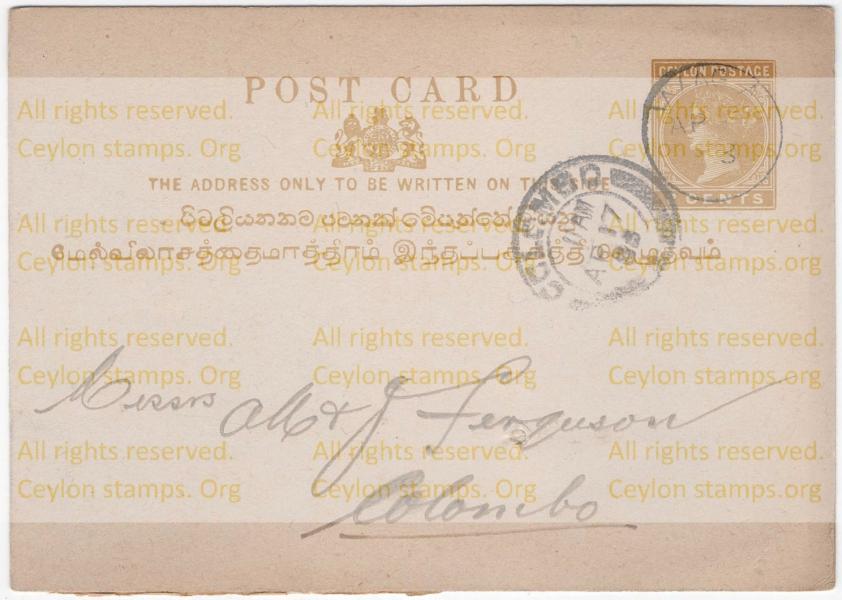 POST CARD
CEYLON POSTAGE
CENTS
THE ADDRESS ONLY TO BE WRITTEN ON THIS SIDE
மேல்விலாசத்தைமாத்திரம் இந்தப்பக்கத்தி லெழுதவும்
COLOMBO
11 AM
AP 17
AP
3
Messrs AM & J Ferguson
Colombo
All rights reserved. All rights reserved. All rights reserved.
Ceylon stamps. Org Ceylon stamps. Org Ceylon stamps.org
All rights reserved. All rights reserved. All rights reserved.
Ceylon stamps. Org Ceylon stamps. Org Ceylon stamps.org
All rights reserved. All rights reserved. All rights reserved.
Ceylon stamps. Org Ceylon stamps. Org Ceylon stamps.org
All rights reserved. All rights reserved. All rights reserved.
Ceylon stamps. Org Ceylon stamps. Org Ceylon stamps.org